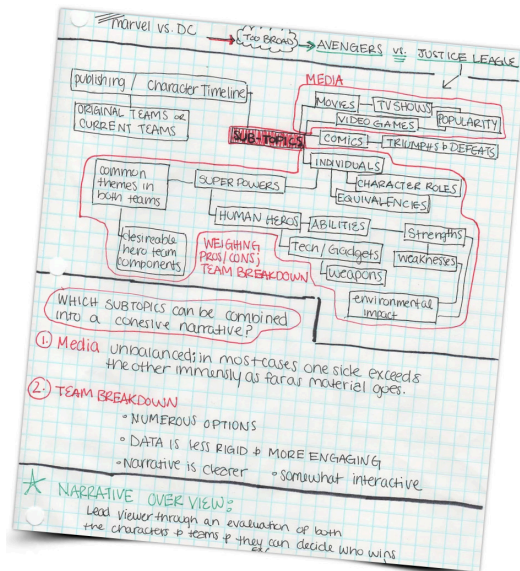 marvel vs. DC
TOO BROAD
AVENGERS vs. JUSTICE LEAGUE
publishing / character Timeline
ORIGINAL TEAMS or
CURRENT TEAMS
MEDIA
MOVIES
TV SHOWS
VIDEO GAMES
POPULARITY
SUB-TOPICS
COMICS
TRIUMPHS & DEFEATS
INDIVIDUALS
CHARACTER ROLES
EQUIVALENCIES
common
themes in
both teams
SUPER POWERS
HUMAN HEROS
ABILITIES
Strengths
weaknesses
desireable
hero team
components
WEIGHING
PROS/CONS;
TEAM BREAKDOWN
Tech/Gadgets
Weapons
environmental
impact
WHICH SUBTOPICS can be combined
into a cohesive narrative?
1. Media unbalanced; in most cases one side exceeds
the other immensly as far as material goes.
2. TEAM BREAKDOWN
• NUMEROUS OPTIONS
• DATA IS LESS RIGID & MORE ENGAGING
• Narrative is clearer • somewhat interactive
NARRATIVE OVERVIEW:
Lead viewer through an evaluation of both
the characters & teams & they can decide who wins